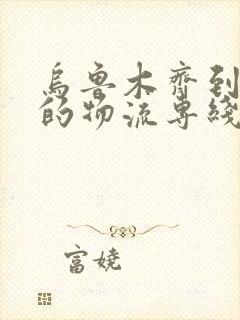 烏魯木齊到
的物流專綫
富嬈